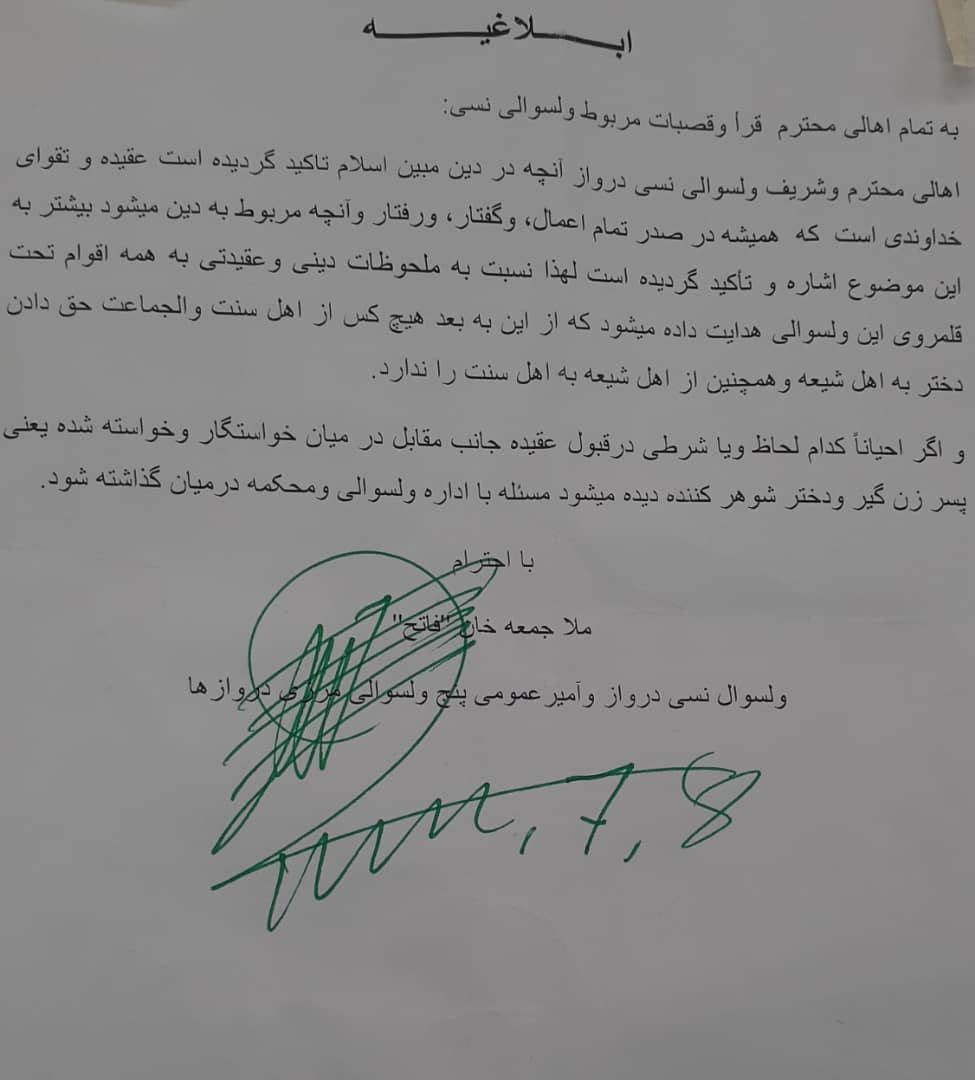 ابلاغیه
به تمام اهالی محترم قرأ وقصبات مربوط ولسوالی نسی:
اهالی محترم وشریف ولسوالی نسی درواز آنچه در دین مبین اسلام تاکید گردیده است عقیده و تقوای
خداوندی است که همیشه در صدر تمام اعمال، وگفتار، ورفتار وآنچه مربوط به دین میشود بیشتر به
این موضوع اشاره و تأکید گردیده است لهذا نسبت به ملحوظات دینی وعقیدتی به همه اقوام تحت
قلمروی این ولسوالی هدایت داده میشود که از این به بعد هیچ کس از اهل سنت والجماعت حق دادن
دختر به اهل شیعه وهمچنین از اهل شیعه به اهل سنت را ندارد.
و اگر احیاناً کدام لحاظ ویا شرطی درقبول عقیده جانب مقابل در میان خواستگار وخواسته شده یعنی
پسر زن گیر ودختر شوهر کننده دیده میشود مسئله با اداره ولسوالی ومحکمه درمیان گذاشته شود.
با احترام
ملا جمعه خان "فاتح"
ولسوال نسی درواز وآمیر عمومی پنج ولسوالی مرزی درواز ها